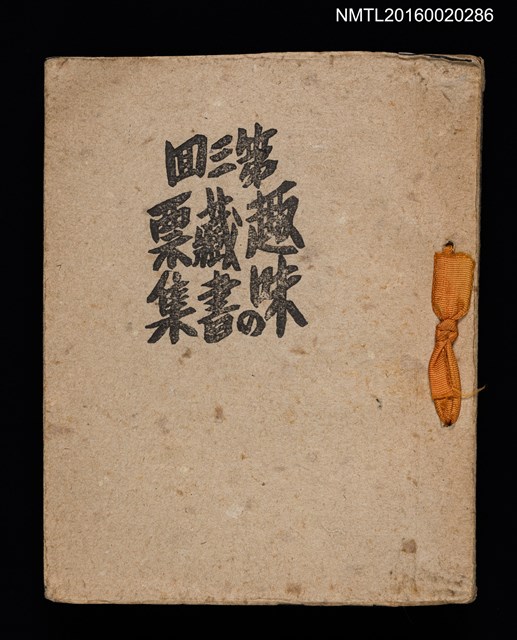 NMTL20160020286
第三回
趣味の
藏書
票集